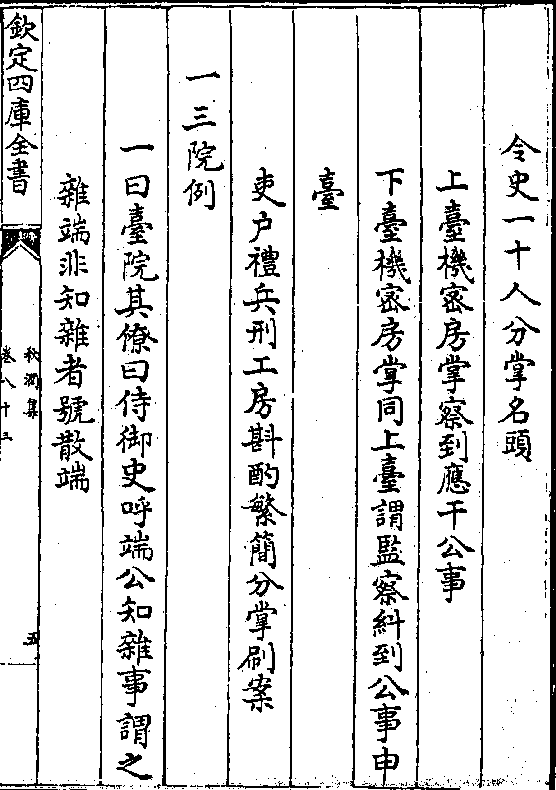 令史一十人分掌名頭
上臺機宻房掌察到應干公事
下臺機宻房掌同上臺謂監察糾到公事申
臺
吏户禮兵刑工房斟酌繁簡分掌刷案
一三院例
一曰臺院其僚曰侍御史呼端公知雜事謂之
雜端非知雜者號散端
欽定四庫全書
秋澗集
卷八十三
五